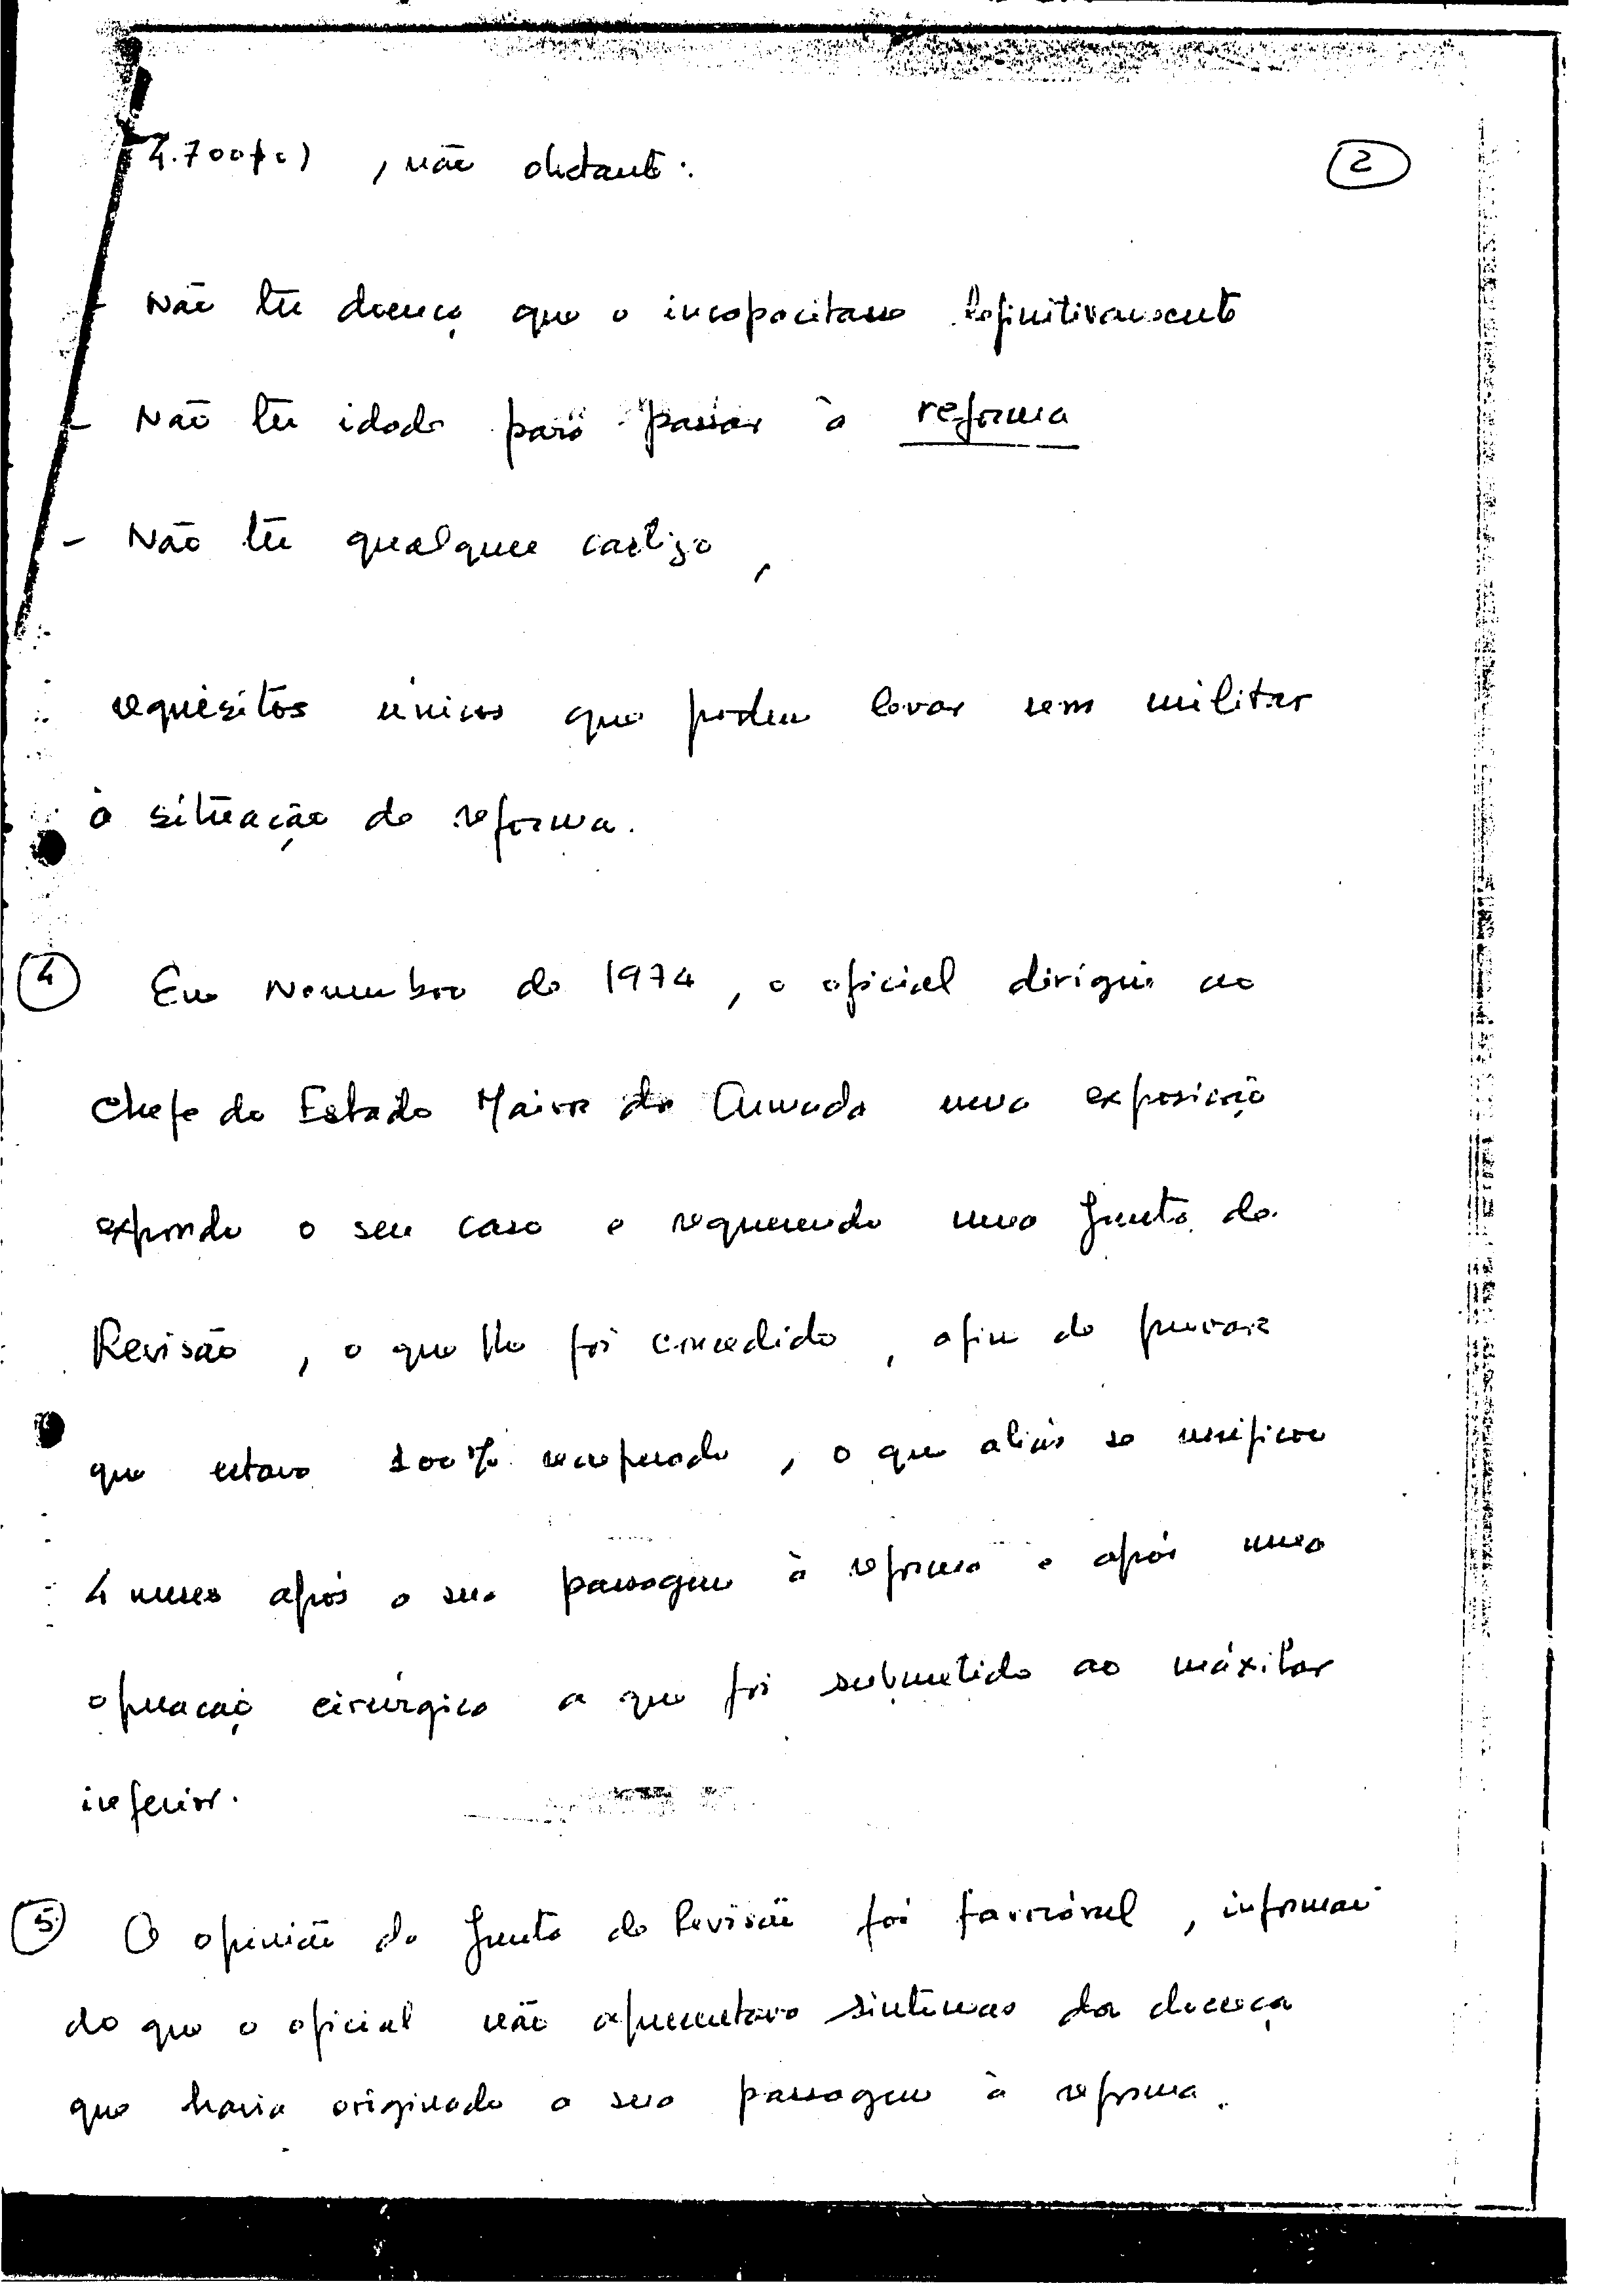 4.700$00) , não obstante:
2
- Não ter doença que o incapacitasse definitivamente
- Não ter idade para passar à reforma
- Não ter qualquer castigo,
requisitos únicos que podem levar um militar
à situação de reforma.
4 Em Novembro de 1974, o oficial dirigiu ao
Chefe do Estado Maior da Armada uma exposição
expondo o seu caso e requerendo uma Junta de
Revisão, o que lhe foi concedido, afim de provar
que estava 100% recuperado, o que aliás se verificou
4 meses após a sua passagem à reforma e após uma
operação cirúrgica a que foi submetido ao máxilar
inferior.
5 A opinião da Junta de Revisão foi favorável, informan
do que o oficial não apresentava sintomas da doença
que havia originado a sua passagem à reforma.